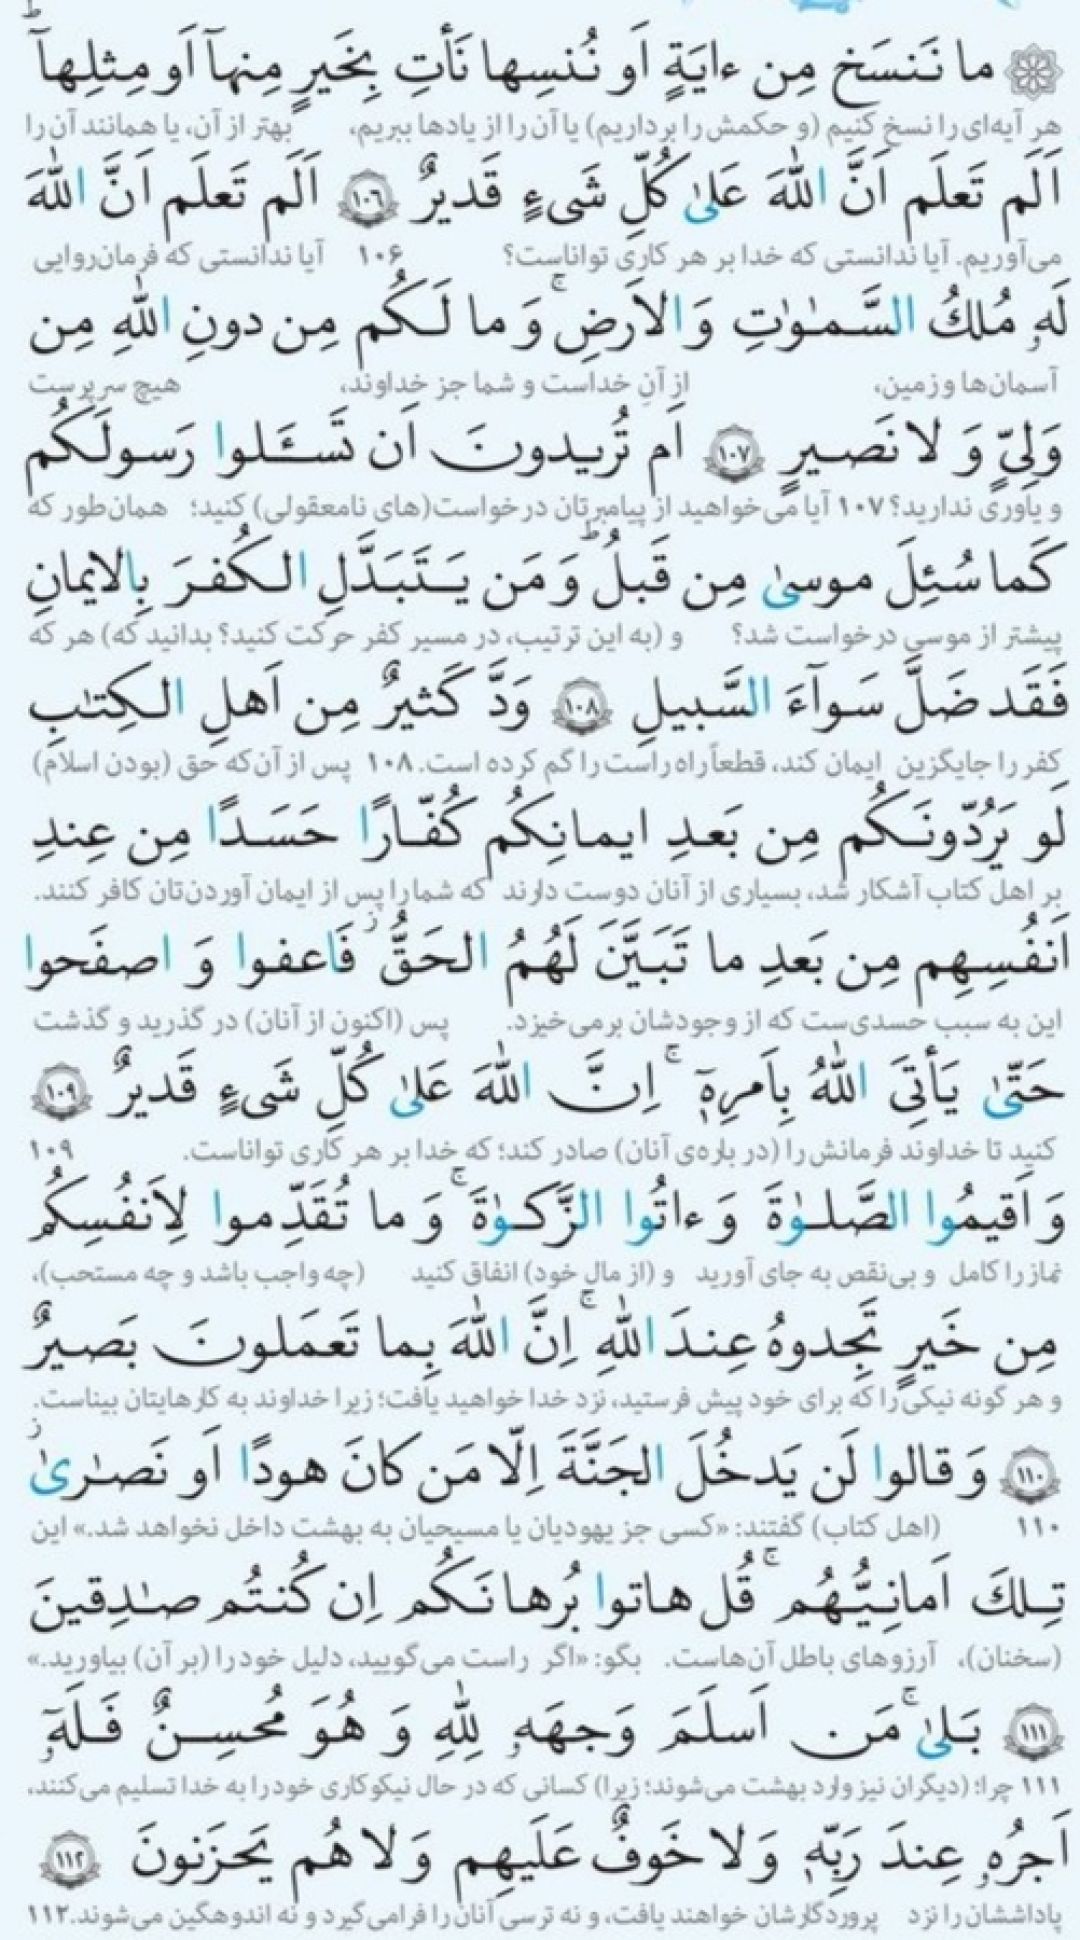 ما نَنسَخ مِن ءايَةٍ اَو نُنسِها نَأتِ بِخَيرٍ مِنهآ اَو مِثلِهآ ؕ
هر آیه‌ای را نسخ کنیم (و حکمش را برداریم) یا آن را از یادها ببریم، بهتر از آن، یا همانند آن را
اَلَم تَعلَم اَنَّ اللهَ عَلىٰ كُلِّ شَىءٍ قَديرٌ ۱۰۶ اَلَم تَعلَم اَنَّ اللهَ
می‌آوریم. آیا ندانستی که خدا بر هر کاری تواناست؟ ۱۰۶ آیا ندانستی که فرمان‌روایی
لَهٗ مُلكُ السَّمٰوٰتِ وَ الاَرضِ ۚ وَ ما لَكُم مِن دونِ اللهِ مِن
آسمان‌ها و زمین، از آنِ خداست و شما جز خداوند، هیچ سرپرست
وَلِىٍّ وَ لا نَصيرٍ ۱۰۷ اَم تُريدونَ اَن تَسـَٔلوا رَسولَكُم
و یاوری ندارید؟ ۱۰۷ آیا می‌خواهید از پیامبرتان درخواست(های نامعقولی) کنید؛ همان‌طور که
كَما سُئِلَ موسىٰ مِن قَبلُ ؕ وَ مَن يَتَبَدَّلِ الكُفرَ بِالايمانِ
پیشتر از موسی درخواست شد؟ و (به این ترتیب، در مسیر کفر حرکت کنید؟ بدانید که) هر که
فَقَد ضَلَّ سَوآءَ السَّبيلِ ۱۰۸ وَدَّ كَثيرٌ مِن اَهلِ الكِتٰبِ
کفر را جایگزین ایمان کند، قطعاً راه راست را گم کرده است. ۱۰۸ پس از آن‌که حق (بودن اسلام)
لَو يَرُدّونَكُم مِن بَعدِ ايمانِكُم كُفّارًا حَسَدًا مِن عِندِ
بر اهل کتاب آشکار شد، بسیاری از آنان دوست دارند که شما را پس از ایمان آوردن‌تان کافر کنند.
اَنفُسِهِم مِن بَعدِ ما تَبَيَّنَ لَهُمُ الحَقُّ ۫ فَاعفوا وَ اصفَحوا
این به سبب حسدی‌ست که از وجودشان برمی‌خیزد. پس (اکنون از آنان) در گذرید و گذشت
حَتّىٰ يَأتِىَ اللهُ بِاَمرِهٖٓ ۚ اِنَّ اللهَ عَلىٰ كُلِّ شَىءٍ قَديرٌ ۱۰۹
کنید تا خداوند فرمانش را (در باره‌ی آنان) صادر کند؛ که خدا بر هر کاری تواناست. ۱۰۹
وَ اَقيمُوا الصَّلوٰةَ وَ ءاتُوا الزَّكوٰةَ ۚ وَ ما تُقَدِّموا لِاَنفُسِكُم
نماز را کامل و بی‌نقص به جای آورید و (از مال خود) انفاق کنید (چه واجب باشد و چه مستحب)،
مِن خَيرٍ تَجِدوهُ عِندَ اللهِ ۚ اِنَّ اللهَ بِما تَعمَلونَ بَصيرٌ
و هر گونه نیکی را که برای خود پیش فرستید، نزد خدا خواهید یافت؛ زیرا خداوند به کارهایتان بیناست.
۱۱۰ وَ قالوا لَن يَدخُلَ الجَنَّةَ اِلّا مَن كانَ هودًا اَو نَصٰرىٰ ۫
۱۱۰ (اهل کتاب) گفتند: «کسی جز یهودیان یا مسیحیان به بهشت داخل نخواهد شد.» این
تِلكَ اَمانِيُّهُم ۚ قُل هاتوا بُرهانَكُم اِن كُنتُم صٰدِقينَ
(سخنان)، آرزوهای باطل آن‌هاست. بگو: «اگر راست می‌گویید، دلیل خود را (بر آن) بیاورید.»
۱۱۱ بَلىٰ ۚ مَن اَسلَمَ وَجهَهٗ لِلّٰهِ وَ هُوَ مُحسِنٌ فَلَهٗٓ
۱۱۱ چرا؛ (دیگران نیز وارد بهشت می‌شوند؛ زیرا) کسانی که در حال نیکوکاری خود را به خدا تسلیم می‌کنند،
اَجرُهٗ عِندَ رَبِّهٖ وَ لا خَوفٌ عَلَيهِم وَ لا هُم يَحزَنونَ ۱۱۲
پاداششان را نزد پروردگارشان خواهند یافت، و نه ترسی آنان را فرامی‌گیرد و نه اندوهگین می‌شوند. ۱۱۲